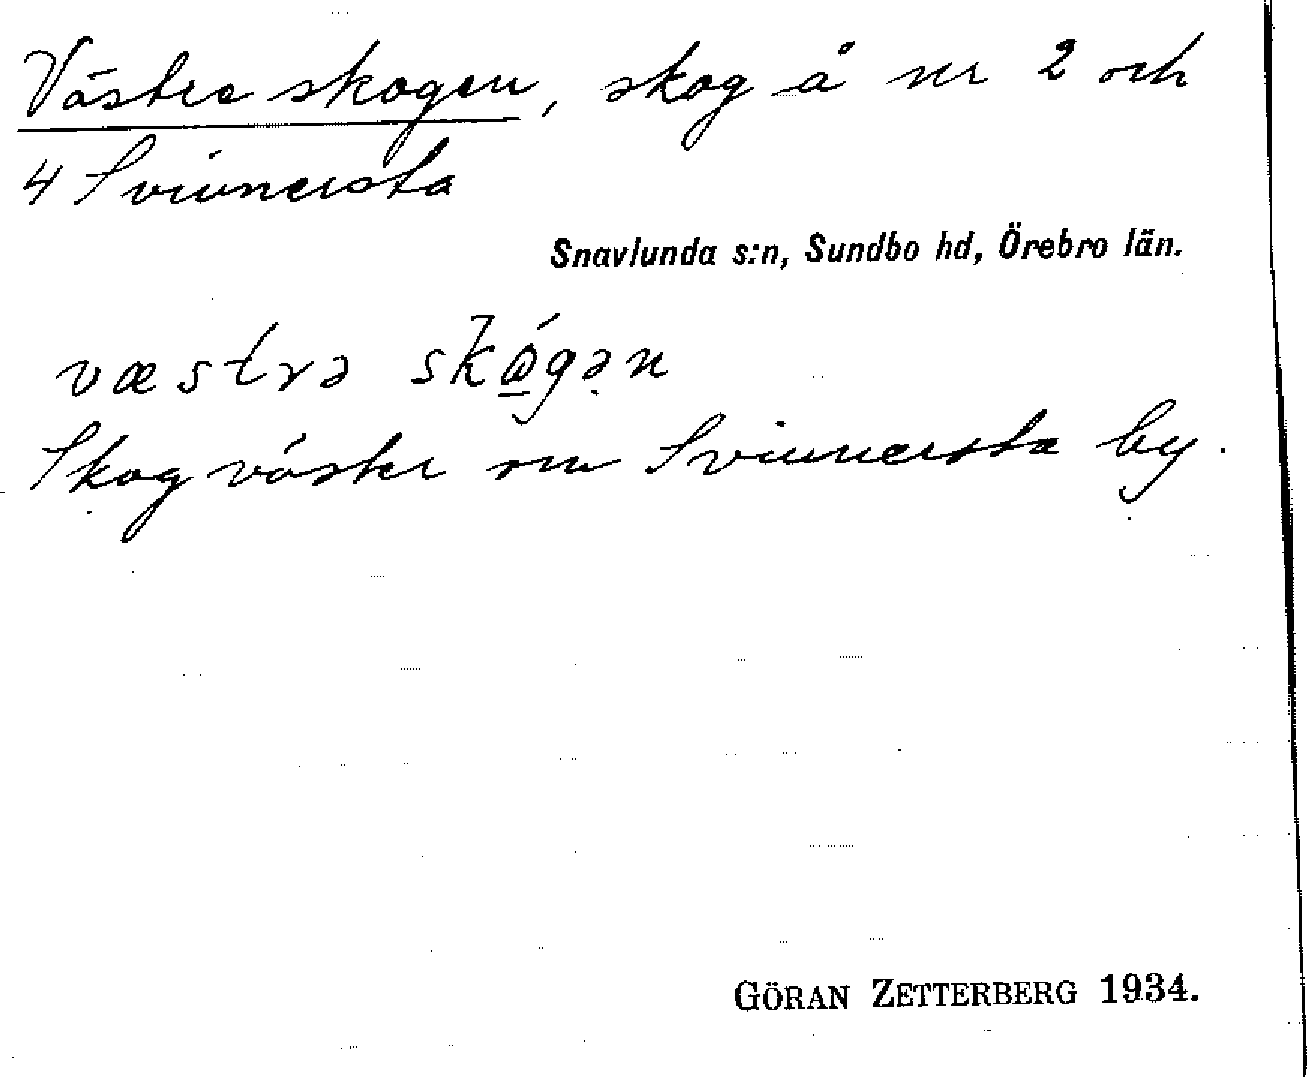 Västra skogen, skog å nr 2 och
4 Svinnersta
Snavlunda s:n, Sundbo hd, Örebro län.
væstrə skógən
Skog väster om Svinnersta by.
GÖRAN ZETTERBERG 1934.